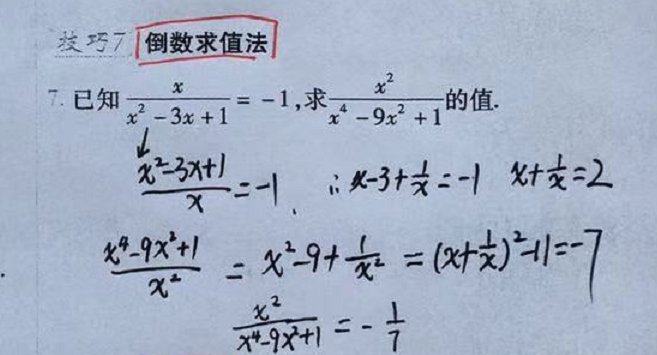 技巧7 倒数求值法
7. 已知 x/(x²-3x+1) = -1, 求 x²/(x⁴-9x²+1) 的值.
(x²-3x+1)/x = -1. ∴ x-3+1/x=-1 x+1/x=2
(x⁴-9x²+1)/x² = x²-9+1/x² = (x+1/x)²-11=-7
x²/(x⁴-9x²+1) = -1/7